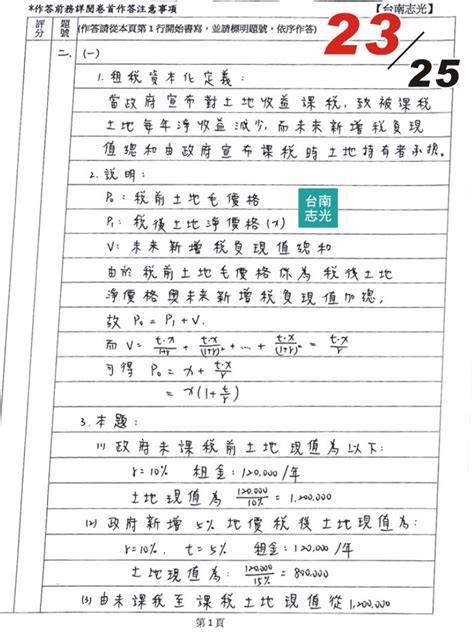 *作答前務請詳閱卷首作答注意事項
【台南志光】
評分
題號
(作答請從本頁第1行開始書寫,並請標明題號,依序作答)
23/25
二、(一)
1. 租稅資本化定義:
當政府宣布對土地收益課稅,致被課稅
土地每年淨收益減少,而未來新增稅負現
值總和由政府宣布課稅時土地持有者承擔。
2. 說明:
P₀:稅前土地毛價格
台南志光
P₁:稅後土地淨價格(x)
V:未來新增稅負現值總和
由於稅前土地毛價格係為稅後土地
淨價格與未來新增稅負現值加總,
故 P₀ = P₁ + V.
而 V = t·x/1+r + t·x/(1+r)² + … + t·x/(1+r)ⁿ = t·x/r
可得 P₀ = x + t·x/r
= x(1+t/r)
3. 本題:
(1) 政府未課稅前土地現值為以下:
r=10% 租金:120,000/年
土地現值為 120,000/10% = 1,200,000
(2) 政府新增 5% 地價稅後土地現值為:
r=10%. t=5% 租金:120,000/年
土地現值為: 120,000/15% = 800,000
(3) 由未課稅至課稅土地現值從1,200,000
第1頁